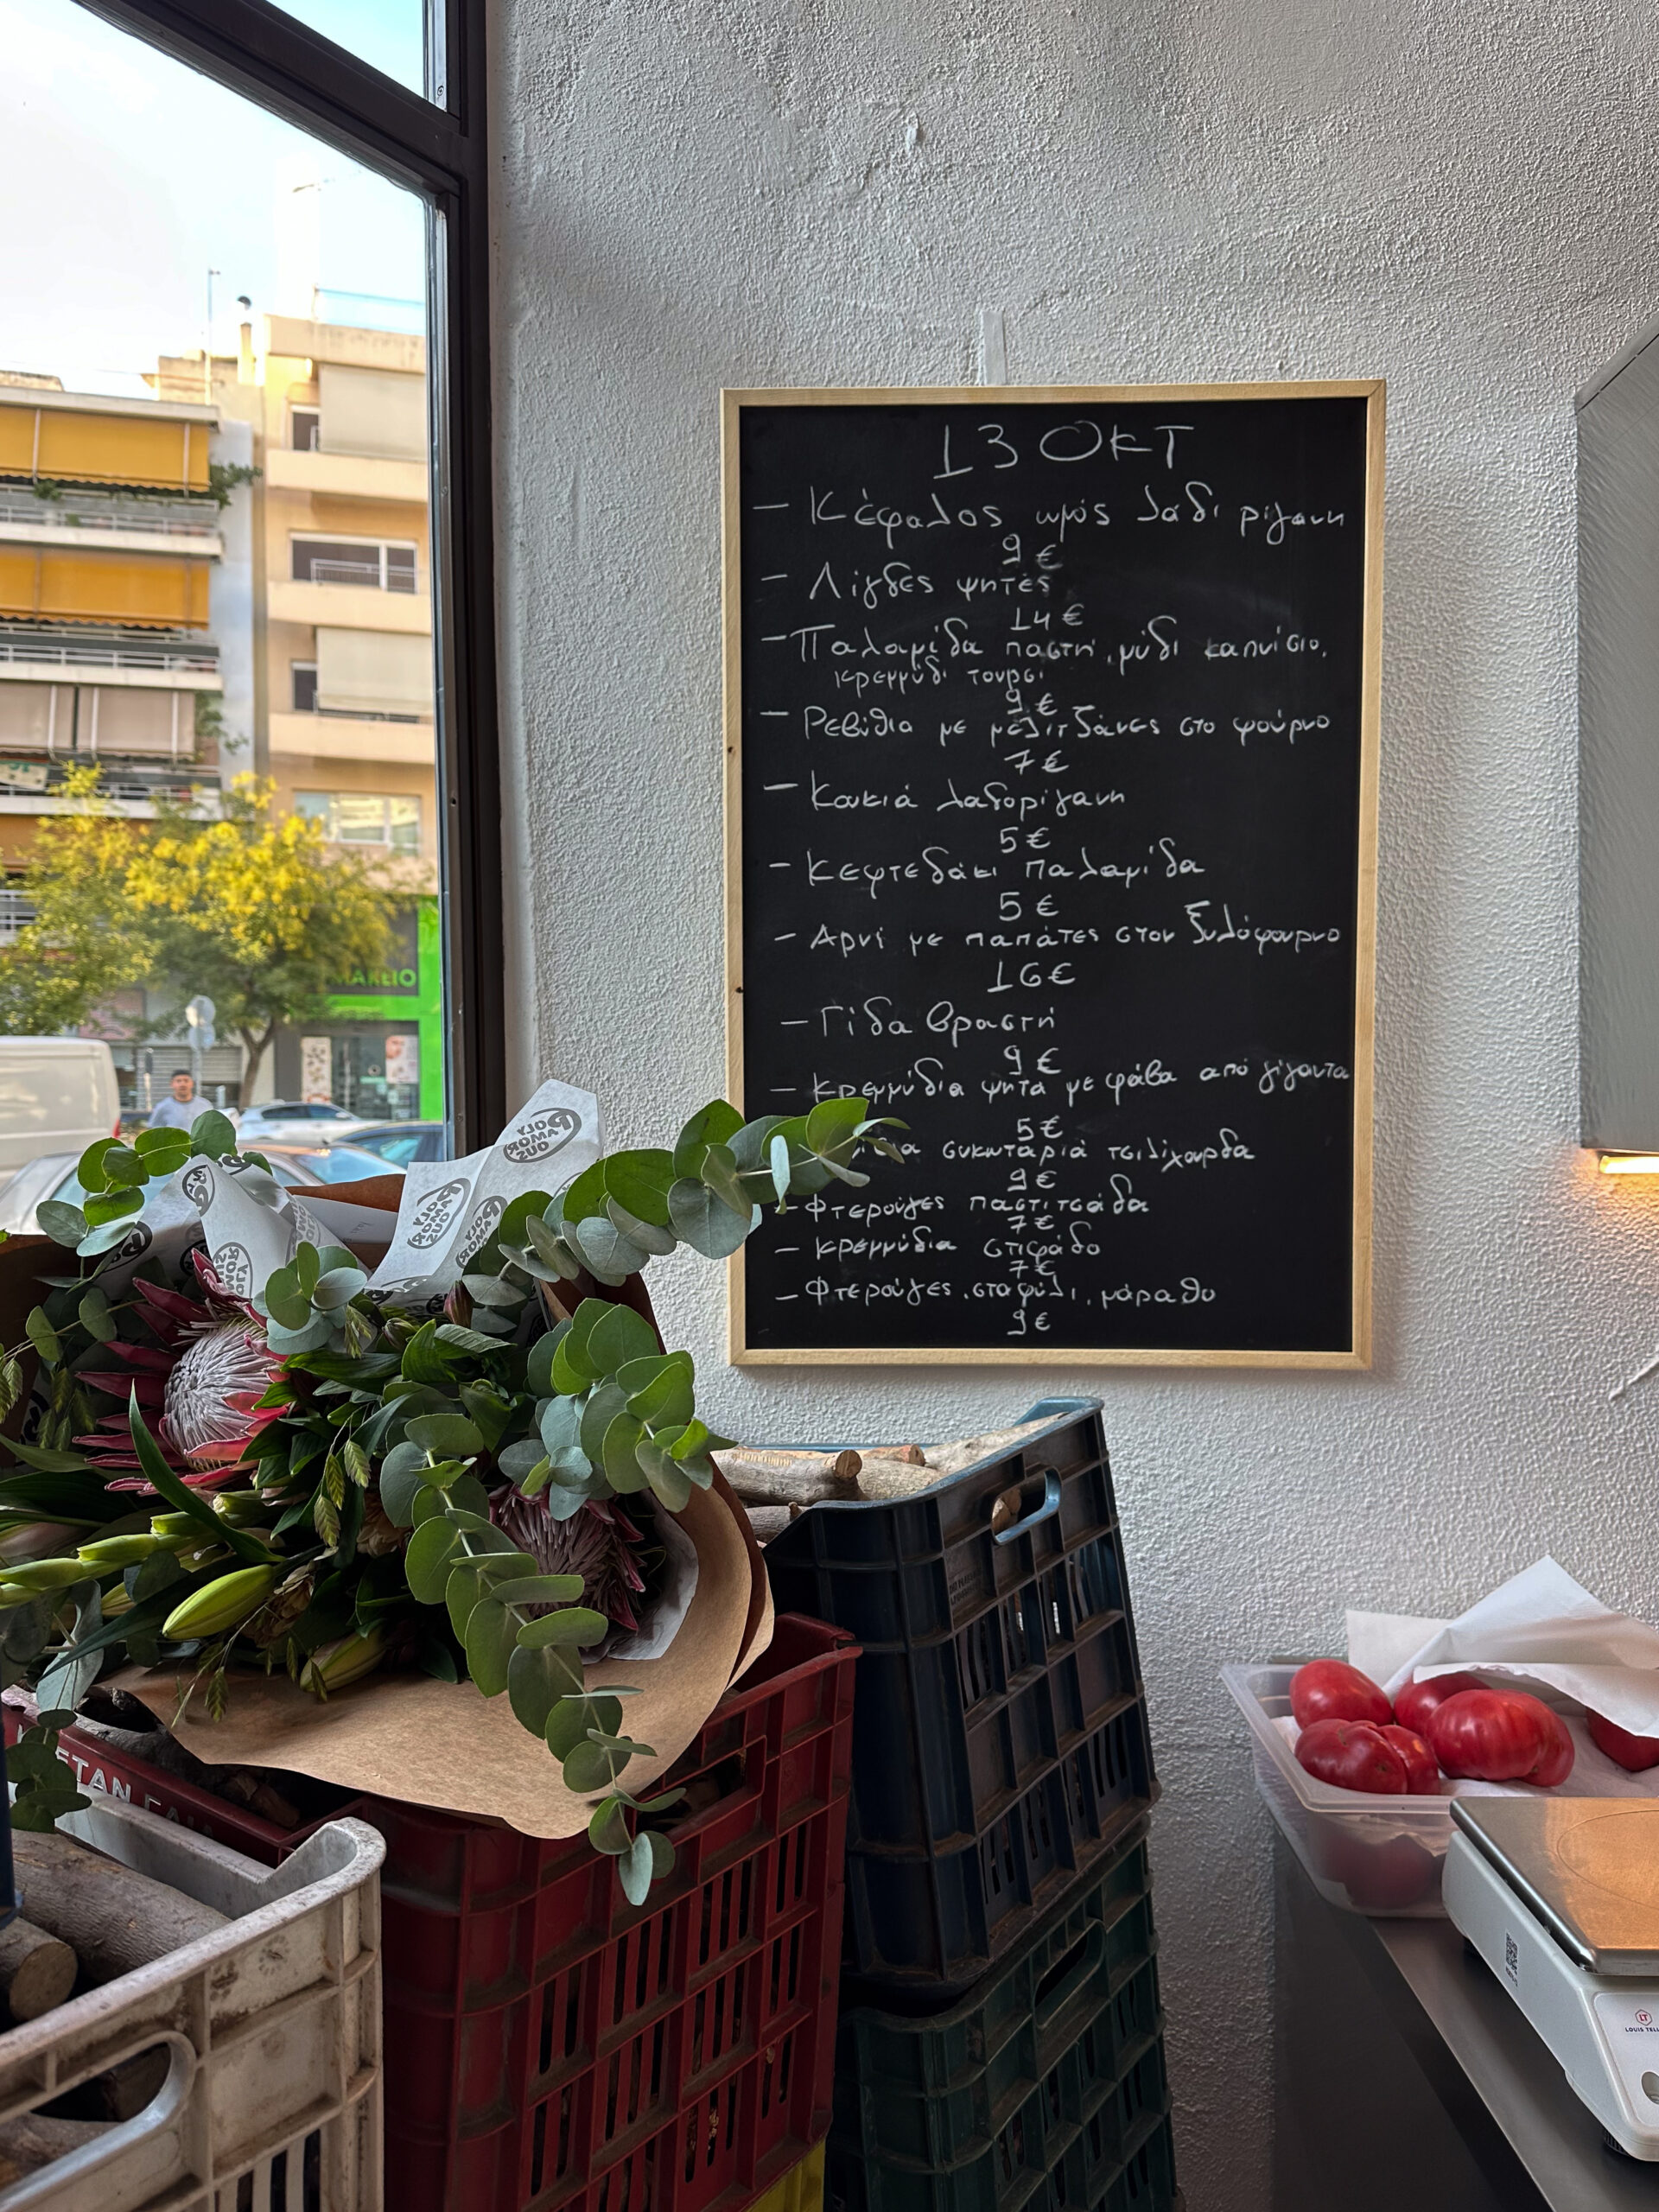 13 ΟΚΤ
– Κέφαλος ωμός λάδι ρίγανη
9 €
– Λίγδες ψητές
14 €
– Παλαμίδα παστή, μύδι καπνίσιο,
κρεμμύδι τουρσί
9 €
– Ρεβύθια με μελιτζάνες στο φούρνο
7 €
– Κουκιά λαδορίγανη
5 €
– Κεφτεδάκι παλαμίδα
5 €
– Αρνί με πατάτες στον ξυλόφουρνο
16 €
– Γίδα βραστή
9 €
– Κρεμμύδια ψητά με φάβα από γίγαντα
5 €
συκωταριά τσιλίχουρδα
9 €
– Φτερούγες παστιτσάδα
7 €
– Κρεμμύδια στιφάδο
7 €
– Φτερούγες, σταφύλι, μάραθο
9 €
POLY
AMOR
OUS
POLY
AMOR
OUS
LOUIS TELL
LT